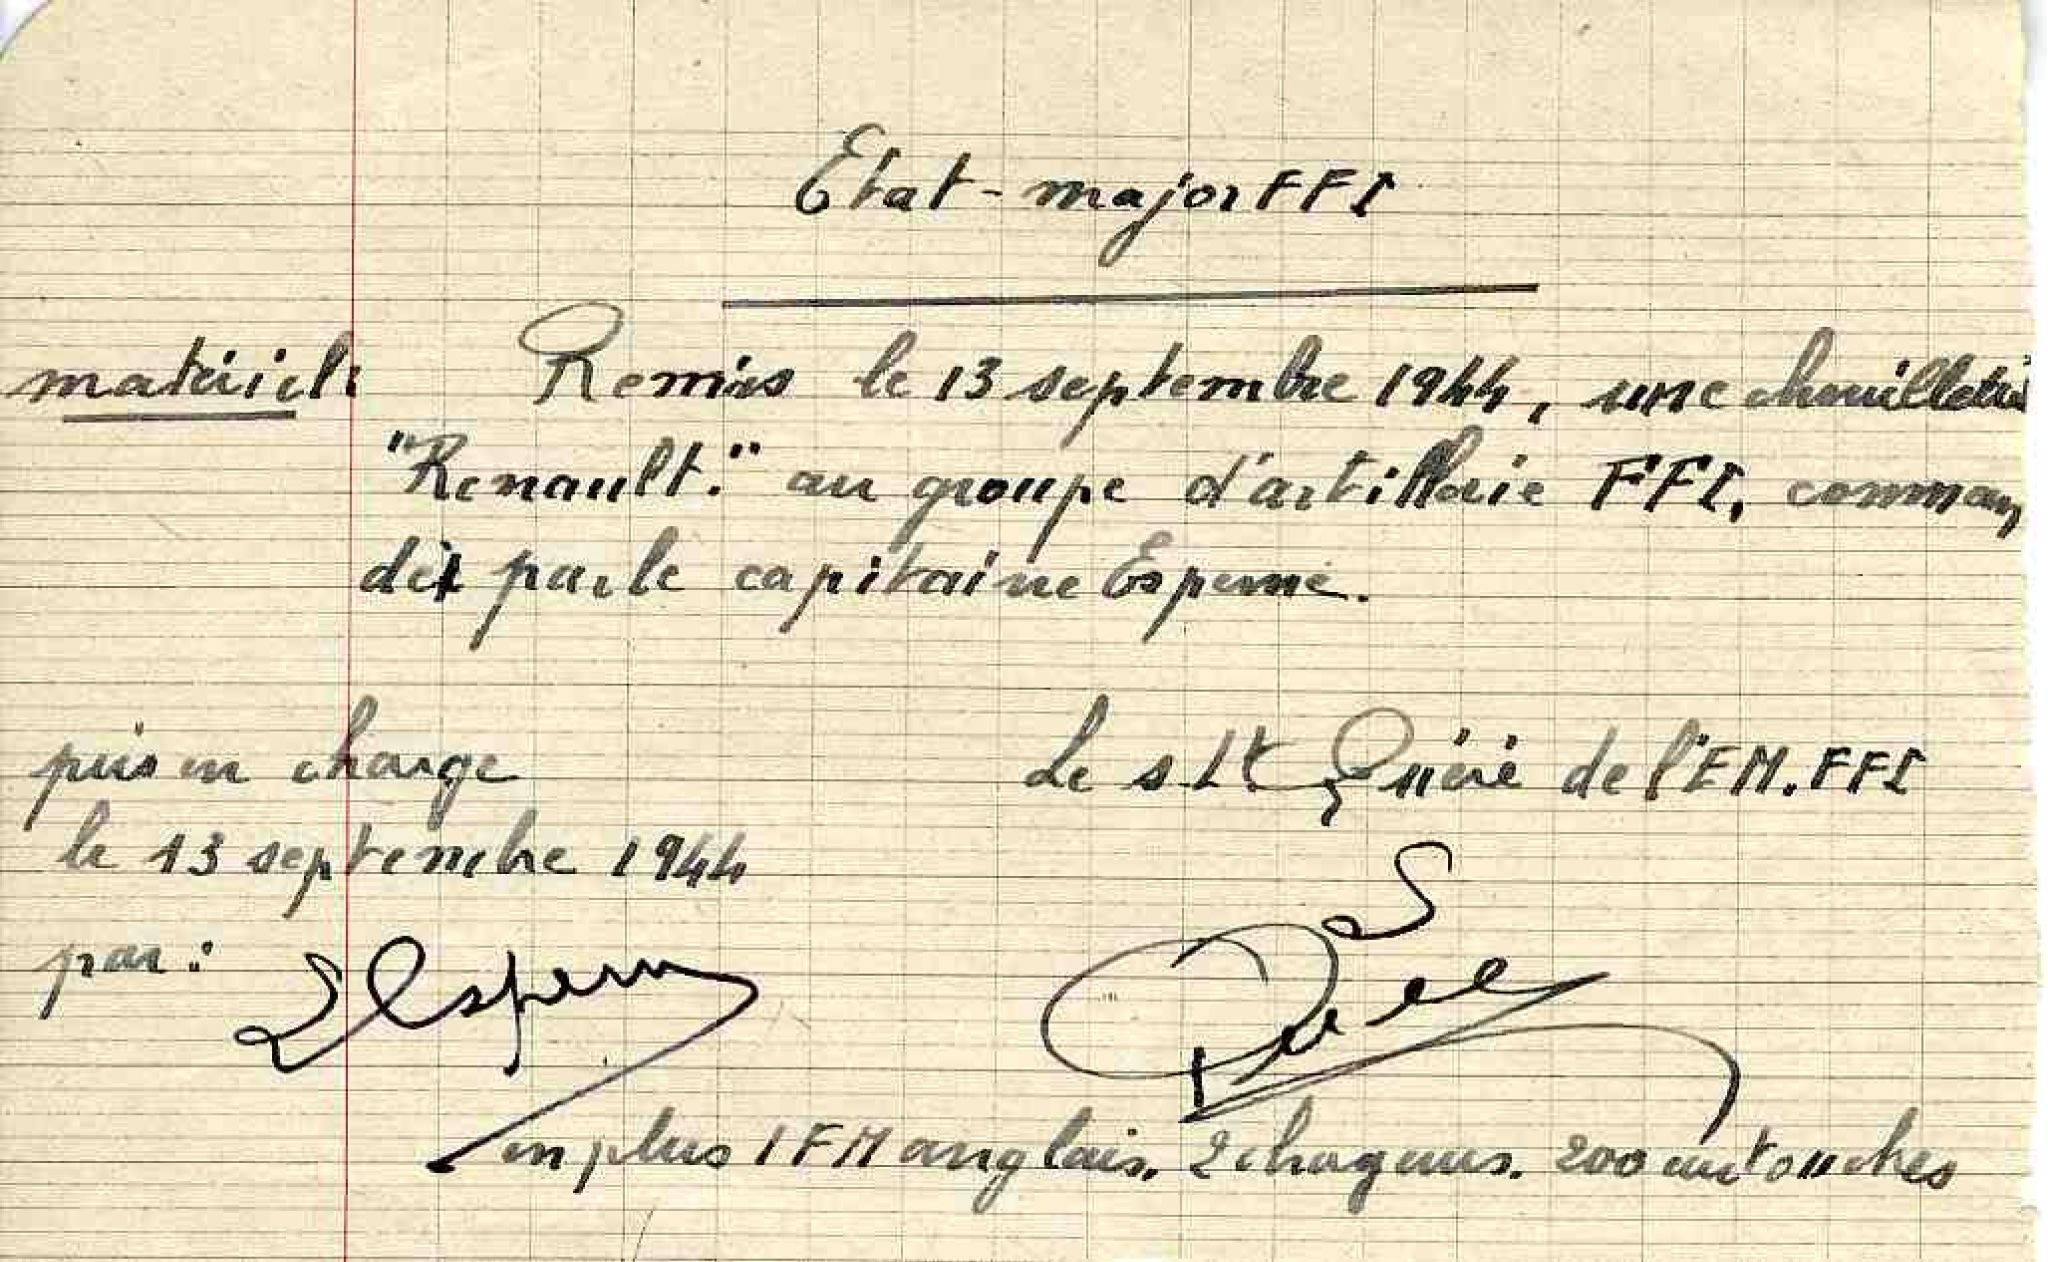 Etat-major FFI
matériel: Remis le 13 septembre 1944, une chenillette
"Renault." au groupe d'artillerie FFI, comman
dé par le capitaine Esperne.
pris en charge Le s.Lt Quéré de l'EM.FFI
le 13 septembre 1944
par: Espern Quéré
en plus 1 FM anglais. 2 chargeurs. 200 cartouches